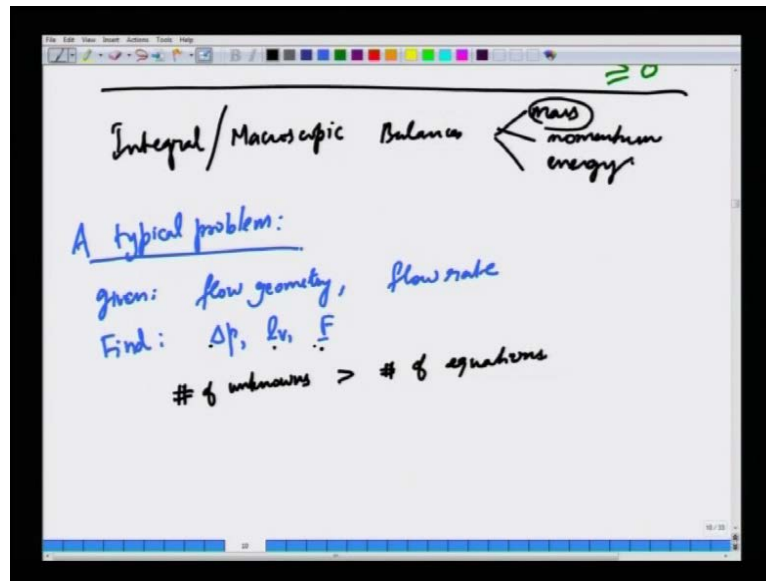 File Edit View Insert Actions Tools Help
≥ 0
Integral / Macroscopic Balances mass
momentum
energy
A typical problem:
given: flow geometry, flow rate
Find: Δp, lv, F
# of unknowns > # of equations